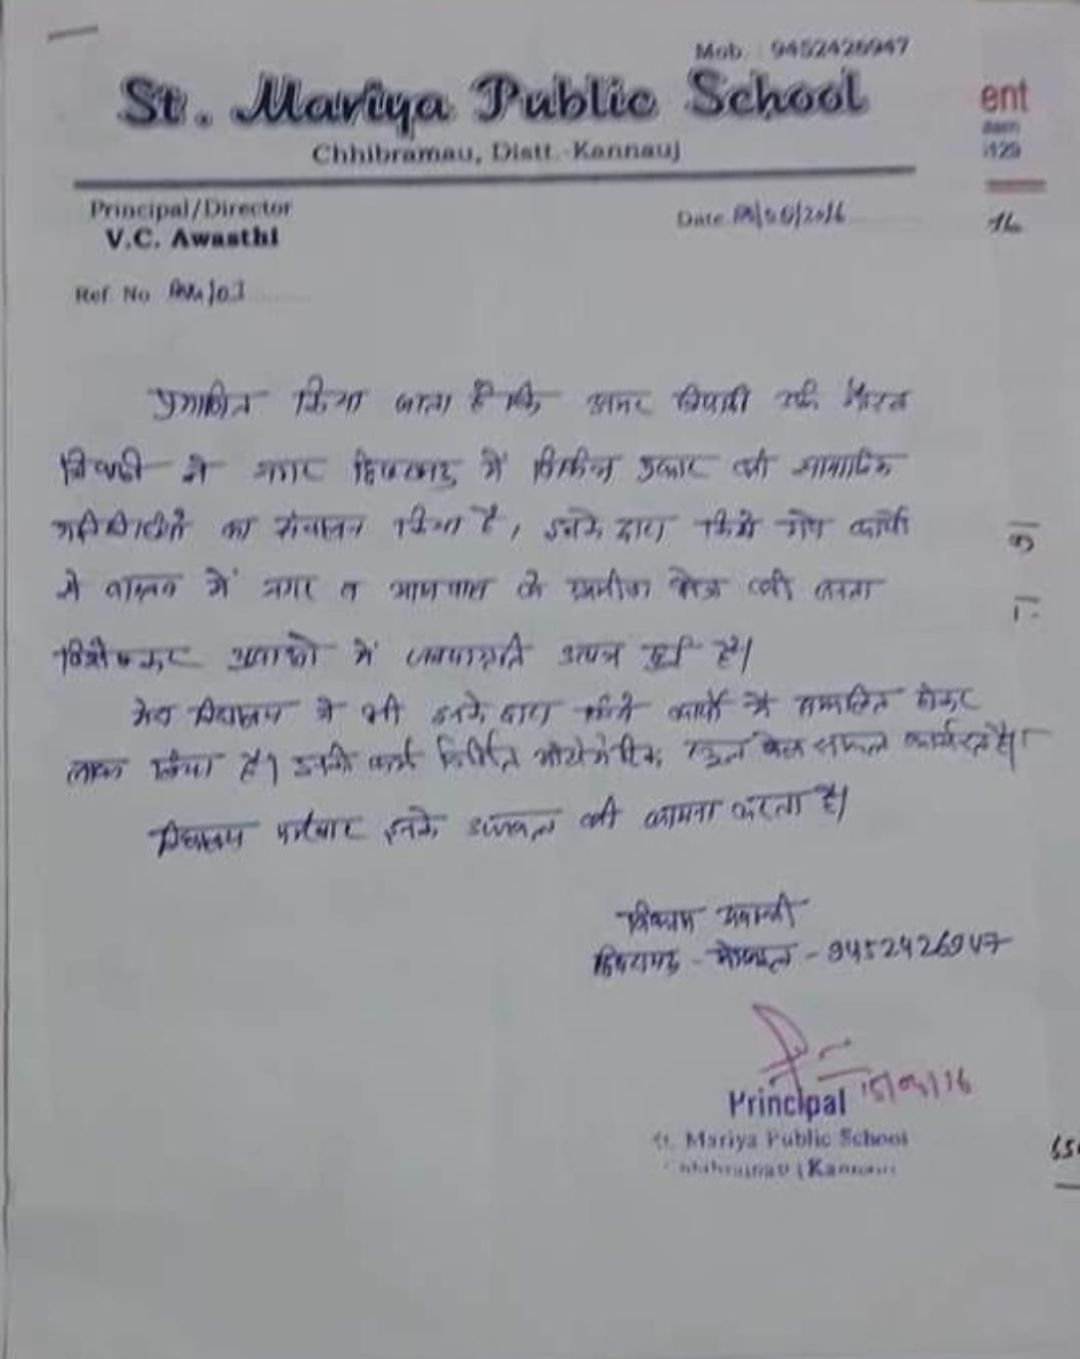 Mob. 9452426947
St. Mariya Public School
Chhibramau, Distt.-Kannauj
ent
Principal/Director
V.C. Awasthi
Date /2016
16
Ref. No /03
प्रमाणित किया जाता है कि अमर त्रिपाठी उर्फ
त्रिपाठी ने नगर छिबरामऊ में विभिन्न प्रकार की सामाजिक
गतिविधियों का संचालन किया है, इनके द्वारा किये गये कार्यों
से वास्तव में नगर व आसपास के ग्रामीण क्षेत्र की जनता
विशेषकर में जनजागृति उत्पन्न हुई है।
मेरा विद्यालय ने भी इनके द्वारा किये कार्यों में सम्मलित होकर
लाभ लिया है। इनकी कार्य कार्यरत है।
विद्यालय परिवार इनके उज्जवल की कामना करता है।
छिबरामऊ - मोबाइल - 9452426947
15/ /16
Principal
St. Mariya Public School
Chhibramau (Kannauj